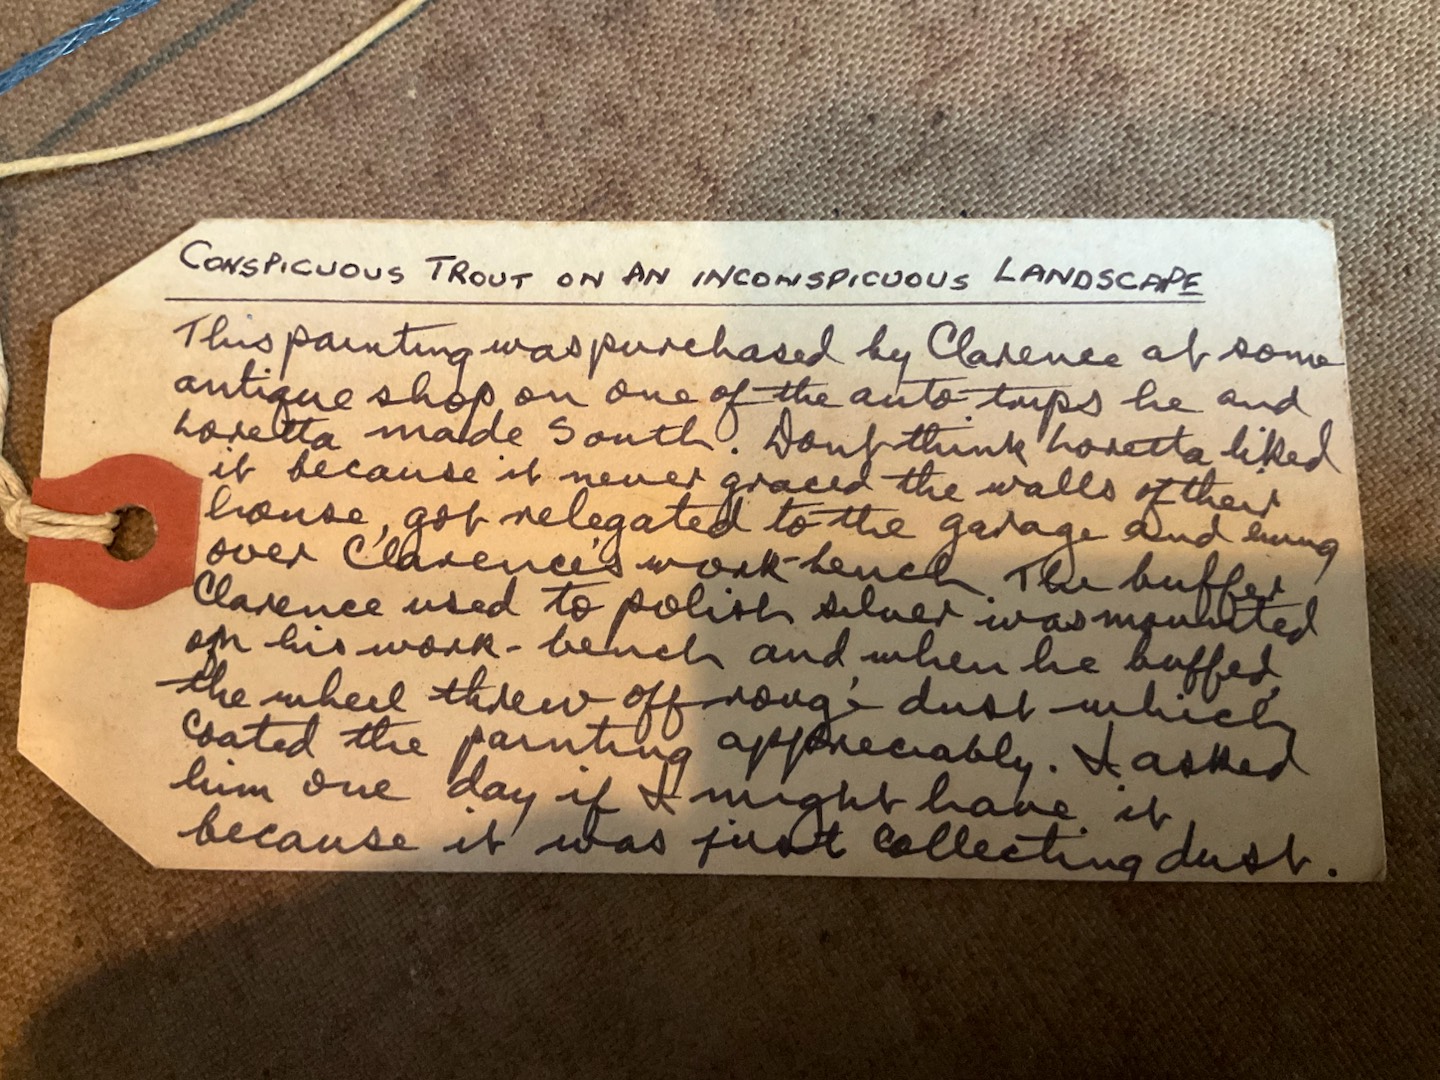 CONSPICUOUS TROUT ON AN INCONSPICUOUS LANDSCAPE
This painting was purchased by Clarence at some
antique shop on one of the auto-trips he and
Loretta made South. Dont think Loretta liked
it because it never graced the walls of their
house, got relegated to the garage and hung
over Clarence's work-bench. The buffer
Clarence used to polish silver was mounted
on his work-bench and when he buffed,
the wheel threw off rougé dust which
coated the painting appreciably. I asked
him one day if I might have it
because it was just collecting dust.